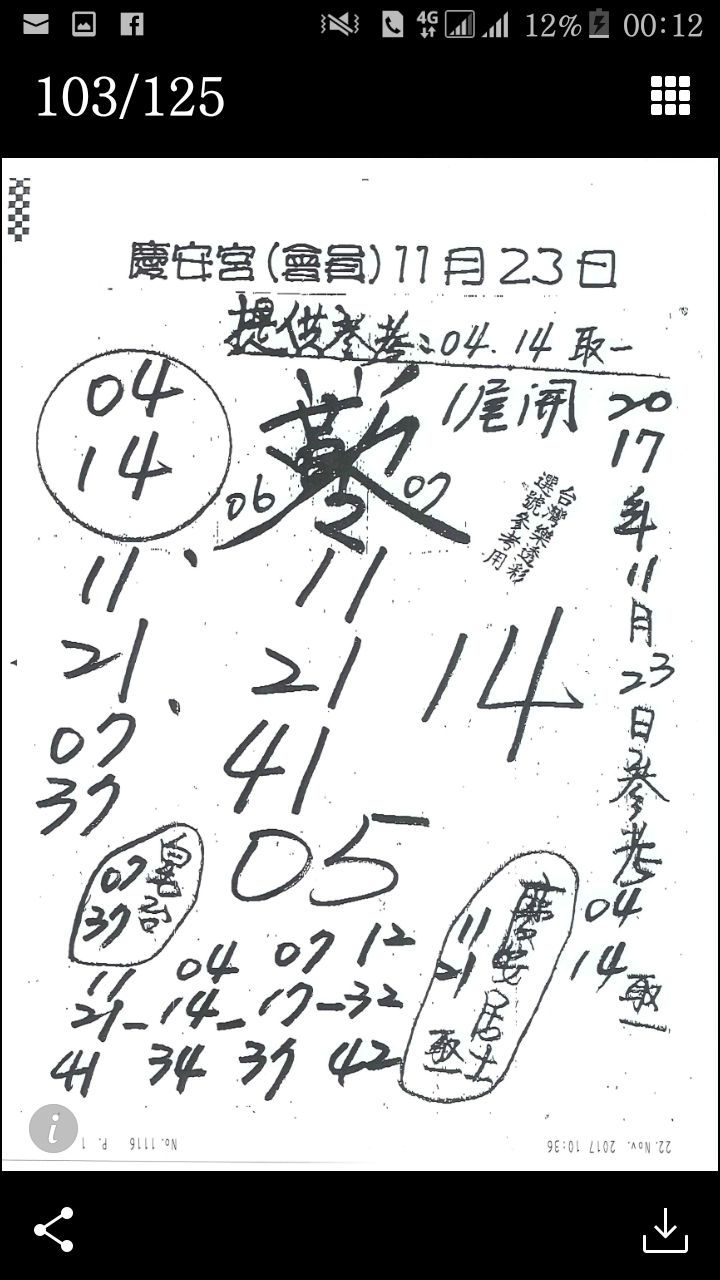 4G 12% 00:12
103/125
慶安宮(會員)11月23日
提供參考:04.14取一
04
14
06
07
1尾開
台灣樂透彩
選號參考用
2017年11月23日參考
04
14
取一
11
21
07
37
11
21
41
14
05
07
37
11 04 07 12
21-14-17-32
41 34 37 42
慶安居士
11
21
取一
No.1116 P. 1
22. Nov. 2017 10:36